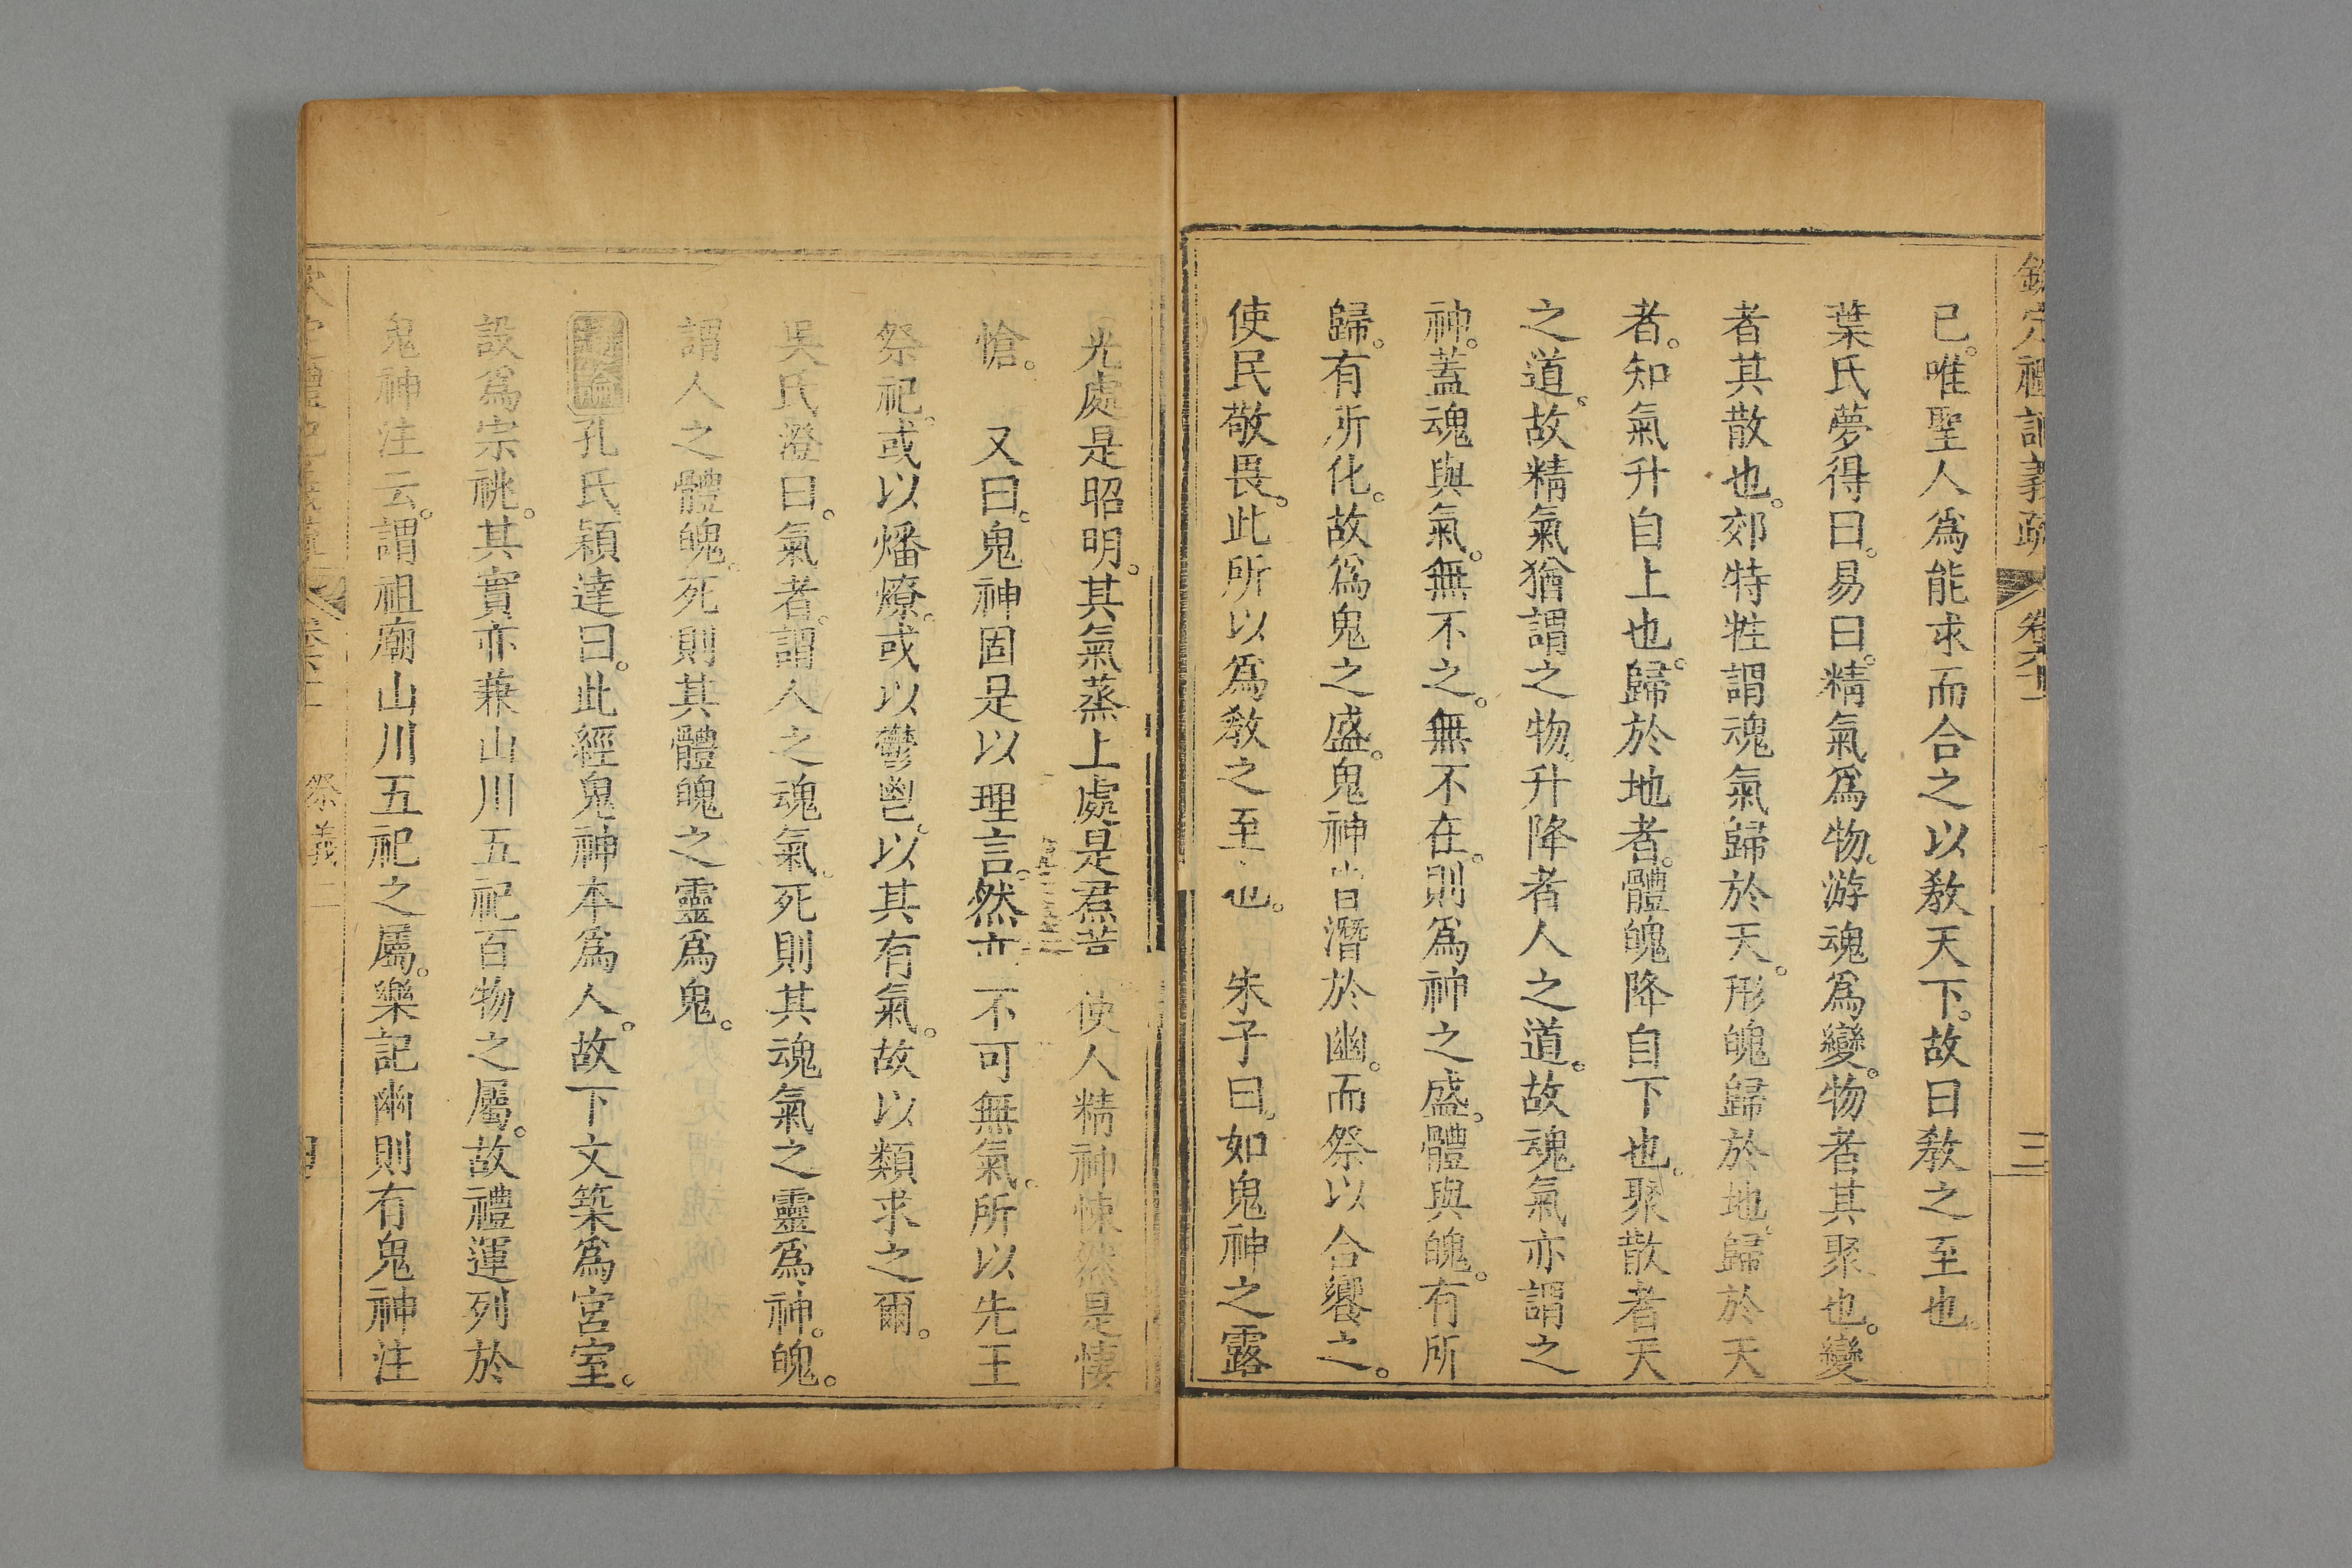 欽定禮記義疏 卷六十一 三
已。唯聖人爲能求而合之以教天下。故曰教之至也。
葉氏夢得曰。易曰。精氣爲物。游魂爲變。物者其聚也。變
者其散也。郊特牲謂魂氣歸於天。形魄歸於地。歸於天
者。知氣升自上也。歸於地者。體魄降自下也。聚散者天
之道。故精氣猶謂之物。升降者人之道。故魂氣亦謂之
神。蓋魂與氣。無不之。無不在。則爲神之盛。體與魄。有所
歸。有所化。故爲鬼之盛。鬼神皆潛於幽。而祭以合饗之。
使民敬畏。此所以爲教之至也。 朱子曰。如鬼神之露
光處是昭明。其氣蒸上處是焄蒿 使人精神悚然是悽
愴。 又曰。鬼神固是以理言。然亦不可無氣。所以先王
祭祀。或以燔燎。或以鬱鬯。以其有氣。故以類求之爾。
吳氏澄曰。氣者。謂人之魂氣。死則其魂氣之靈爲神。魄。
謂人之體魄。死則其體魄之靈爲鬼。
孔氏穎達曰。此經鬼神本爲人。故下文築爲宮室。
設爲宗祧。其實亦兼山川五祀百物之屬。故禮運列於
鬼神注云。謂祖廟山川五祀之屬。樂記幽則有鬼神注
祭義二